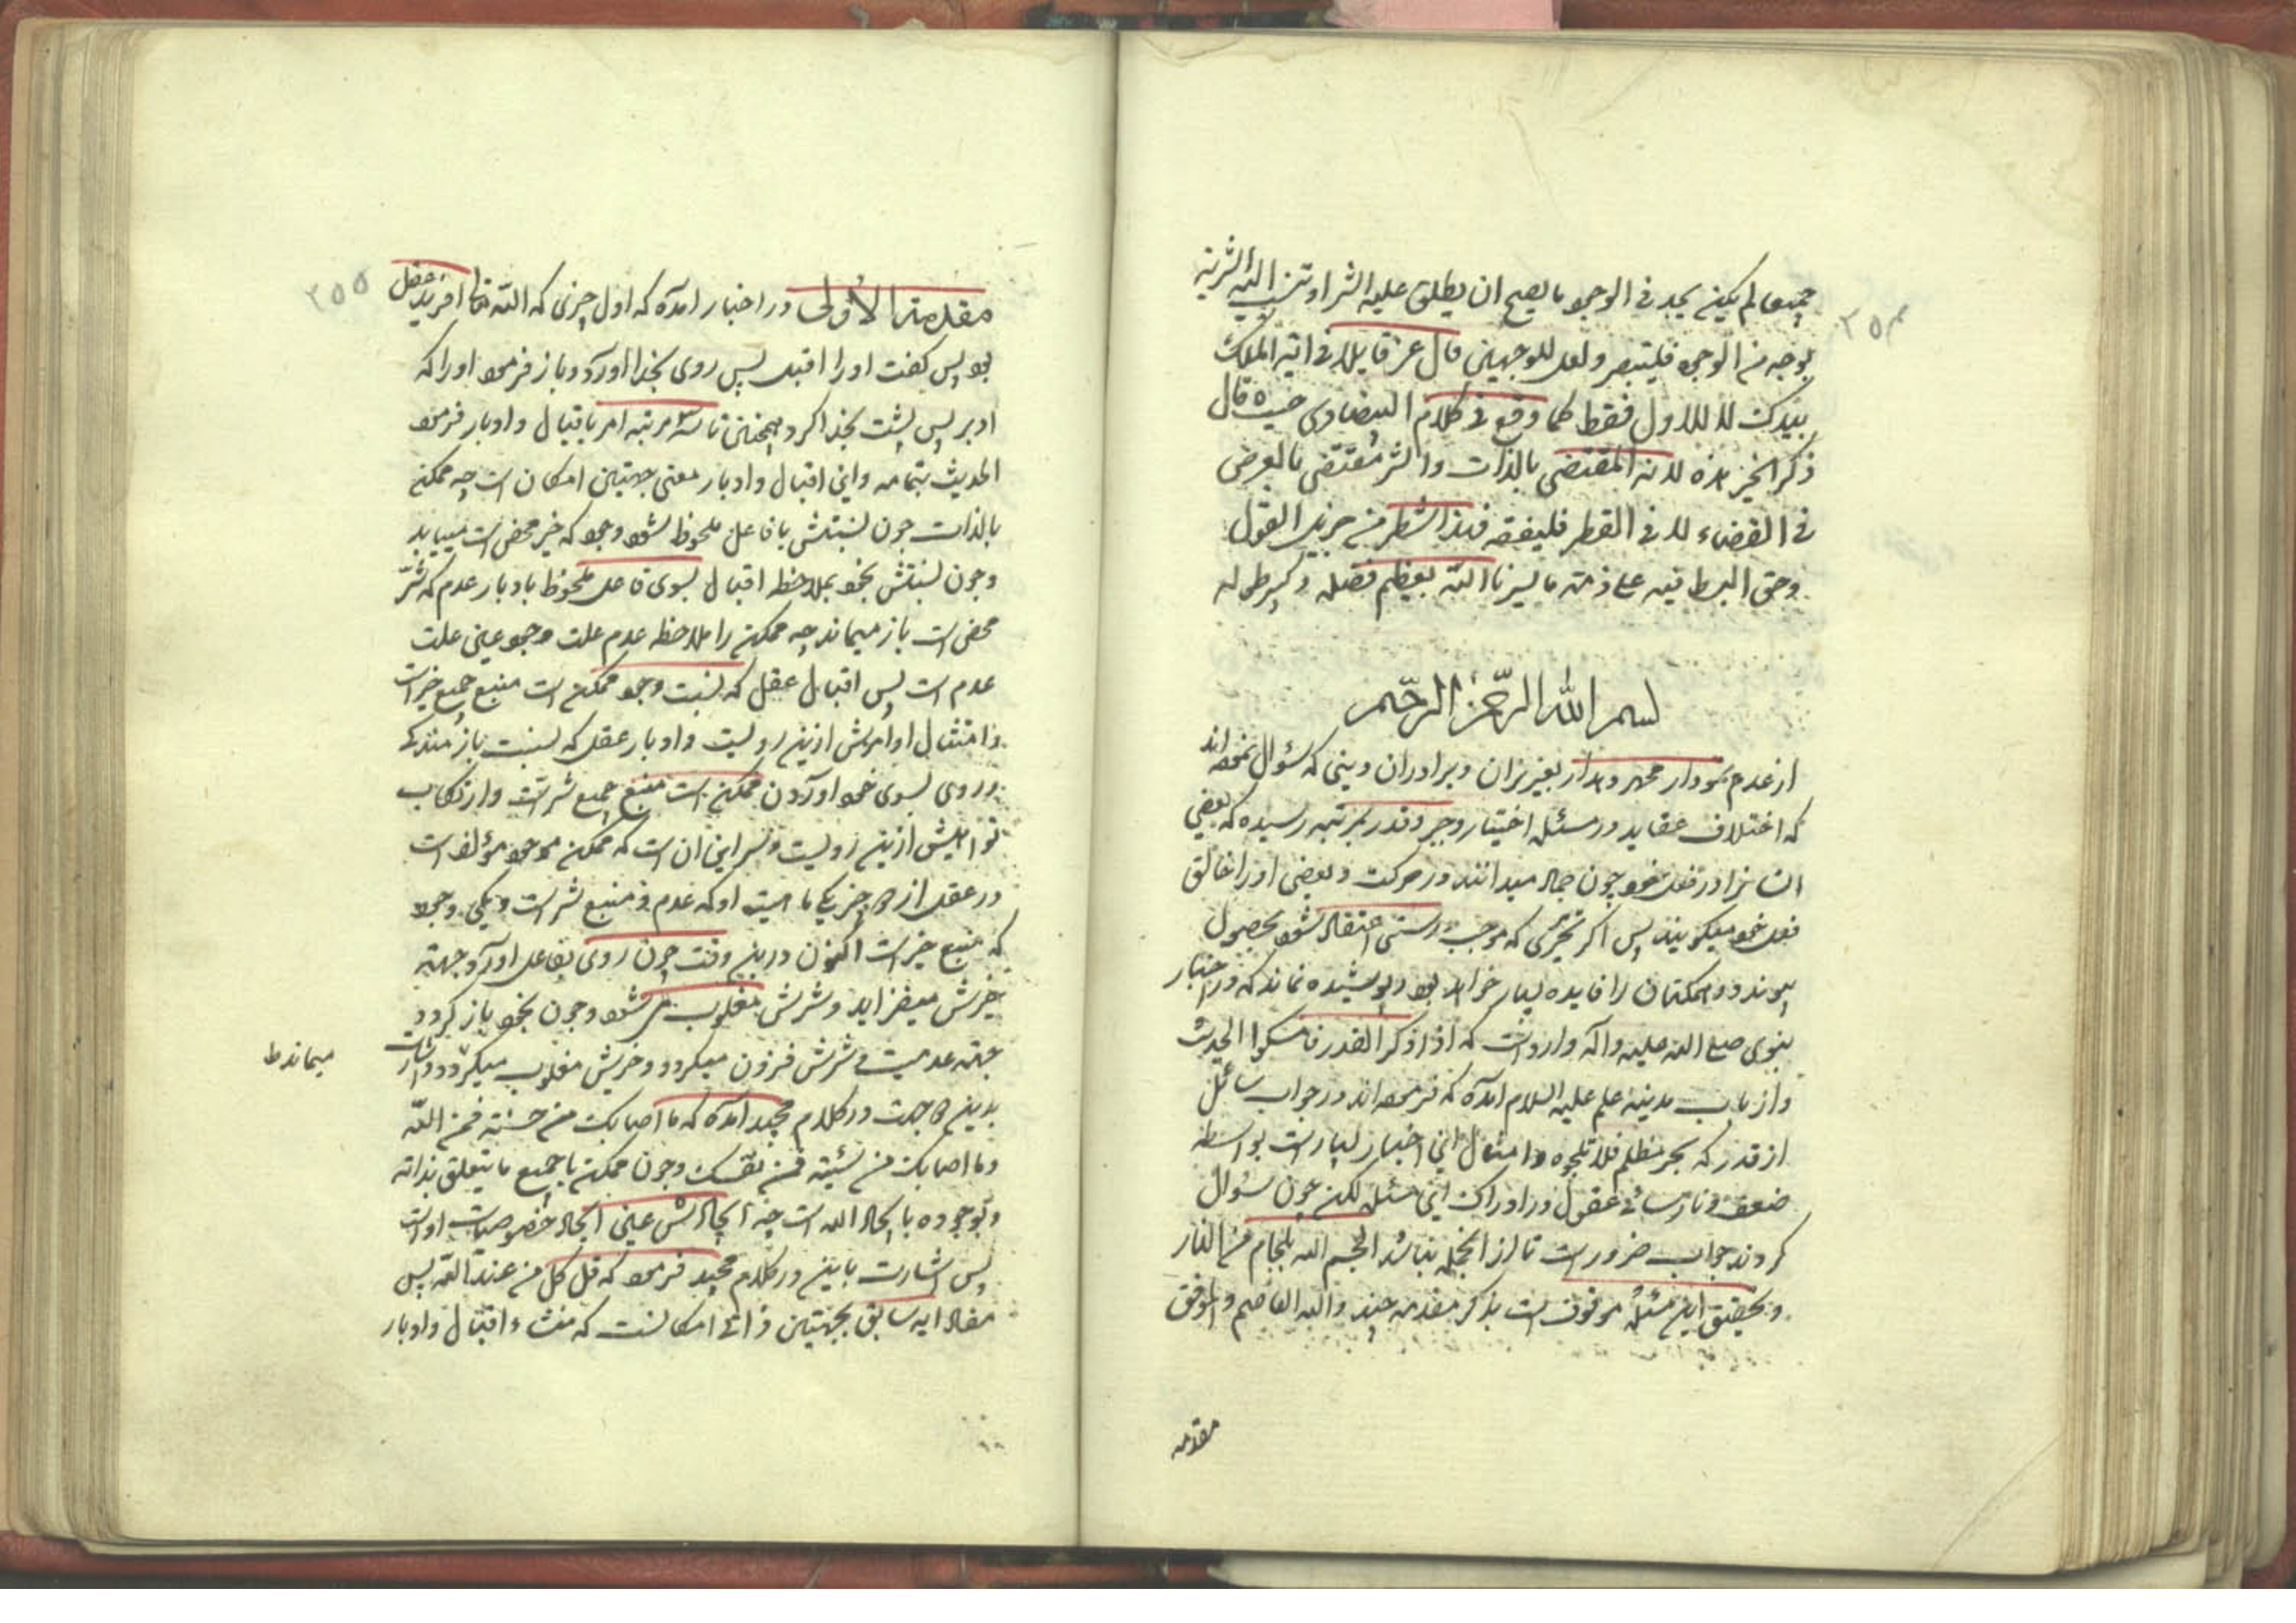 ۲۵۴
جميعا لم يكن يجد في الوجود ما يصح ان يطلق عليه الشر او تنسب اليه الشرية
بوجه من الوجوه فليتبصر ولعل للوجهين قال عز قايلا في اية الملك
بيدك للاول فقط كما وقع في كلام البيضاوى حيث قال
ذكر الخير وحده لانه المقتضى بالذات والشر مقتضى بالعرض
في القضاء لا في القطر فليفقه فهذا شطر من جزيل القول
وحق البسط فيه على ذمة ما ييسرنا الله بعظيم فضله وكبير طوله
بسم الله الرحمن الرحيم
از عدم نمودار بعزيزان وبرادران دينى كه سؤال نموده اند
كه اختلاف عقايد در مسئله اختيار وجبر وقدر بمرتبه رسيده كه بعضى
انسانرا در فعل خود چون جماد ميدانند در حركت وبعضى او را خالق
فعل خود ميگويند پس اگر تحريرى كه موجب درستى اعتقاد شود بحصول
پيوندد همگنان را فايده بسيار خواهد بود وپوشيده نماند كه در اخبار
نبوى صلى الله عليه وآله وارد است كه اذا ذكر القدر فامسكوا الحديث
واز باب مدينه علم عليه السلام آمده كه فرموده اند در جواب سائل
از قدر كه بحر مظلم فلا تلجوه وامثال اين اخبار بسيار است بواسطه
ضعف ونارسائى عقول در ادراك اين مسئله لكن چون سؤال
كردند جواب ضرور است تا از انجمله نباشد الجم الله بلجام من النار
وتحقيق اين مسئله موقوف است بذكر مقدمه چند والله العاصم والموفق
مقدمه
۲۵۵
مقدمة الأولى در اخبار آمده كه اول چيزى كه الله تعالى آفريد عقل
بود پس گفت او را اقبل پس روى بخدا آورد وباز فرمود او را كه
ادبر پس پشت بخدا كرد وهمچنين تا سه مرتبه امر باقبال وادبار فرمود
الحديث بتمامه واين اقبال وادبار معنى جهتين امكان است چه ممكن
بالذات چون نسبتش بفاعل ملحوظ شود وجود كه خير محض است مييابد
وچون نسبتش بخود بملاحظه اقبال بسوى فاعل ملحوظ بادبار عدم كه شر
محض است باز ميماند چه ممكن را ملاحظه عدم علت وجود عين علت
عدم است پس اقبال عقل كه نسبت وجود ممكن است منبع جميع خيرات
وامتثال اوامرش ازين رويست وادبار عقل كه نسبت باز ماندگى
وروى بسوى خود آوردن ممكن است منبع جميع شر است وارتكاب
نواهيش ازين رويست وسر اين آن است كه ممكن موجود مؤلف است
در عقل از دو چيز يكى ماهيت او كه عدم ومنبع شر است ويكى وجود
كه منبع خير است اكنون درين وقت چون روى بفاعل آورد جهت
خيرش ميفزايد وشرش مغلوب مى شود وچون بخود باز گردد
جهت عدميت وشرش فزون ميگردد وخيرش مغلوب ميگردد واشارت
ميماند ط
بدين دو جهت در كلام مجيد آمده كه ما اصابك من حسنة فمن الله
وما اصابك من سيئة فمن نفسك وچون ممكن با جميع ما يتعلق بذاته
وبوجوده بايجاد الله است چه ايجادش عين ايجاد خصوصيات اوست
پس اشارت باين در كلام مجيد فرمود كه قل كل من عند الله پس
مفاد آيه سابق بجهتين ذاتى امكانست كه منشاء اقبال وادبار